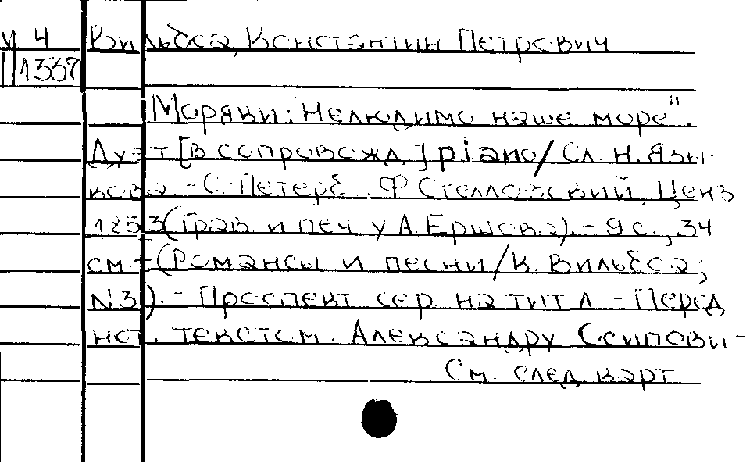 У 4 Вильбоа, Константин Петрович
П 1337
Моряки: Нелюдимо наше море".
Дуэт [в сопровожд.] piano/ Сл. Н. Язы-
кова. - С.-Петерб., Ф. Стелловский, Ценз.
1853 (Грав. и печ. у А. Ершова). - 9 с., 34
см - (Романсы и песни / К. Вильбоа;
N3). - Проспект сер. на тит. л. - Перед
нот. текстом: Александру Осипови-
См. след. карт.